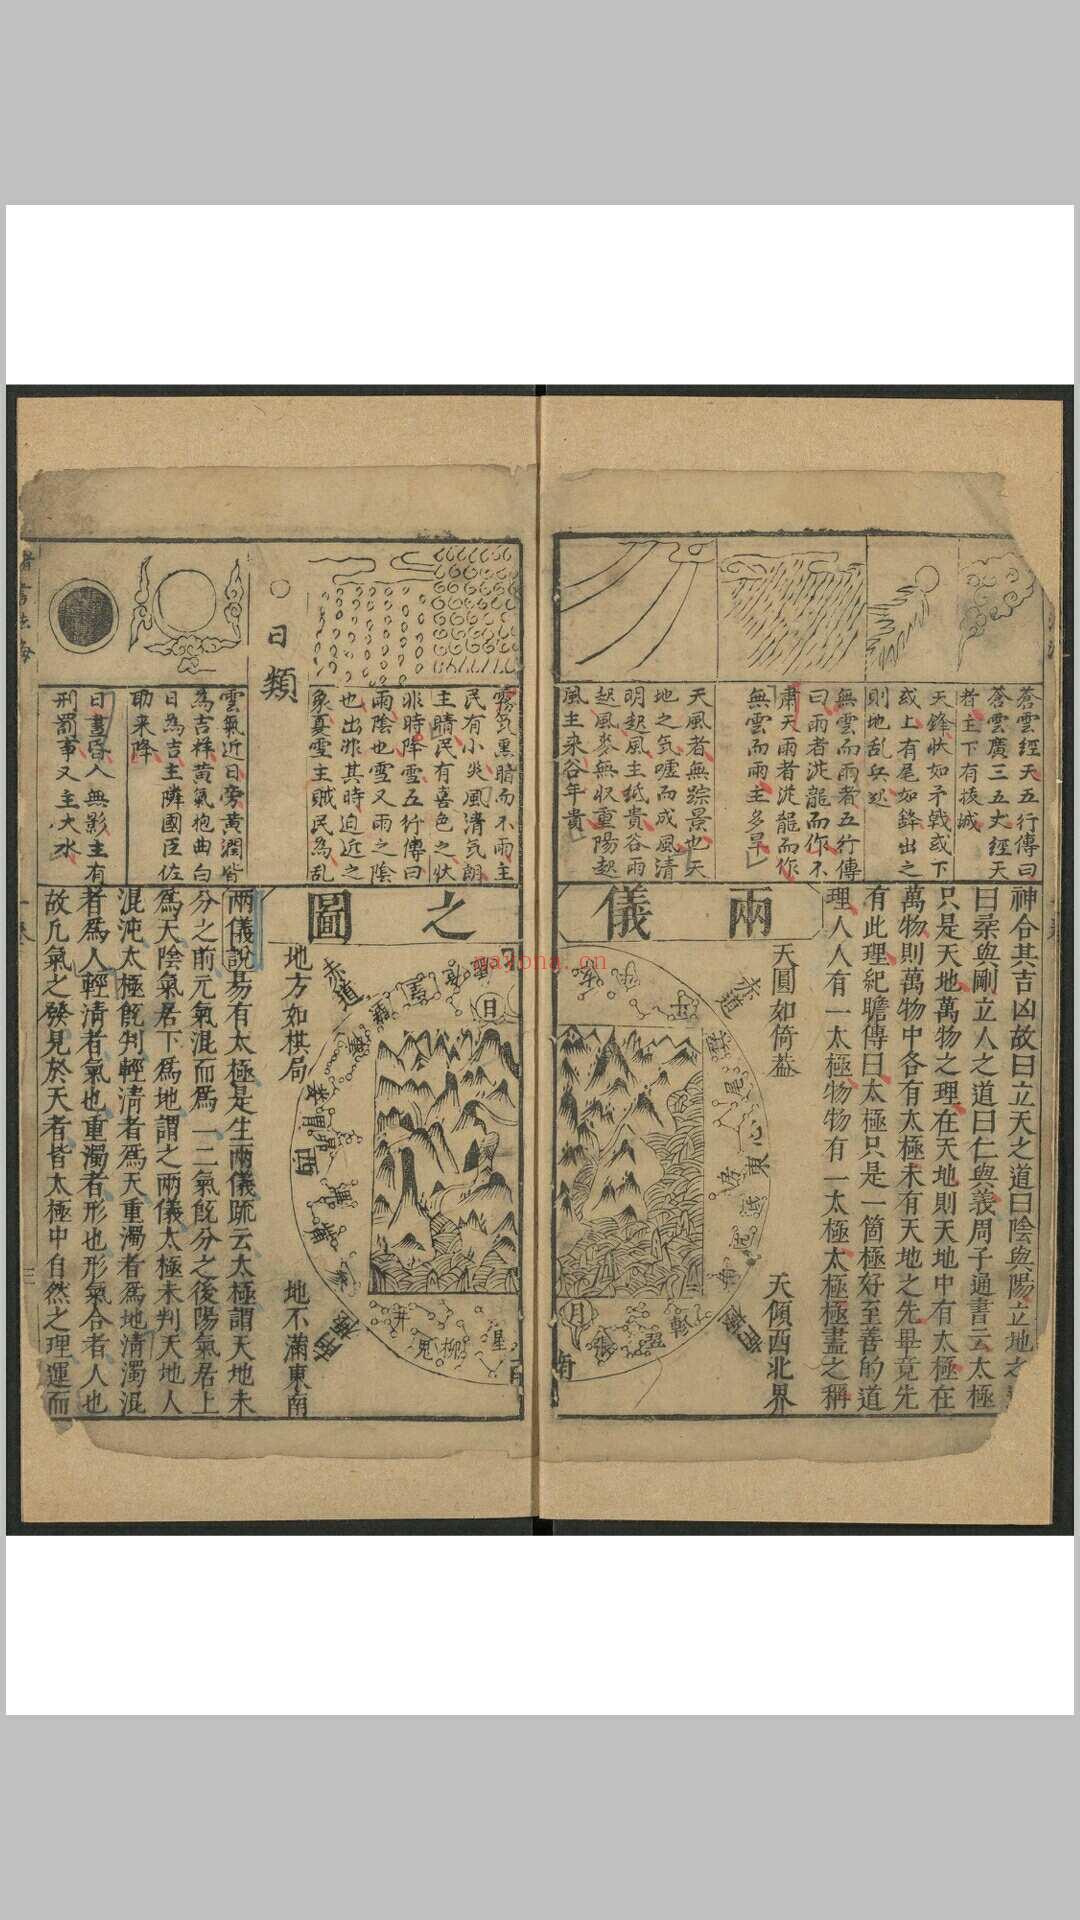 蒼雲經天五行傳曰
蒼雲廣三五丈經天
者主下有拔城
天鋒狀如矛戟或下
或上有尾如鋒出之
則地乱兵起
無雲而雨者五行傳
曰雨者泄龍而作不
肅天雨者泄龍而作
無雲而雨主多旱
天風者無踪景也天
地之気噓而成風清
明起風主紙貴谷雨
起風麥無収重陽起
風主杂谷年貴
神合其吉凶故曰立天之道曰陰與陽立地之
曰柔與剛立人之道曰仁與義周子通書云太極
只是天地萬物之理在天地則天地中有太極在
萬物則萬物中各有太極未有天地之先畢竟先
有此理紀瞻傳曰太極只是一箇極好至善的道
理人人有一太極物物有一太極太極極盡之稱
兩儀
天圓如倚蓋
天傾西北界
赤道
尾
心
東
房
氐
軫
張
月
南
霧気黒暗而不雨主
民有小灾風清気朗
主晴民有喜色之状
非時降雪五行傳曰
雨陰也雪又雨之陰
也出非其時迫近之
象夏雪主賊民為乱
日類
雲氣近日旁黃潤皆
為吉祥黃氣抱曲向
日為吉主隣國臣佐
助来降
日晝昏人無影主有
刑罰事又主大水
之圖
地方如棋局
地不滿東南
赤道
日
西
井
鬼
柳
星
兩儀說易有太極是生兩儀疏云太極謂天地未
分之前元氣混而爲一二氣旣分之後陽氣居上
爲天陰氣居下爲地謂之兩儀太極未判天地人
混沌太極旣判輕清者爲天重濁者爲地清濁混
者爲人輕清者氣也重濁者形也形氣合者人也
故凡氣之發見於天者皆太極中自然之理運而
nayona.cn